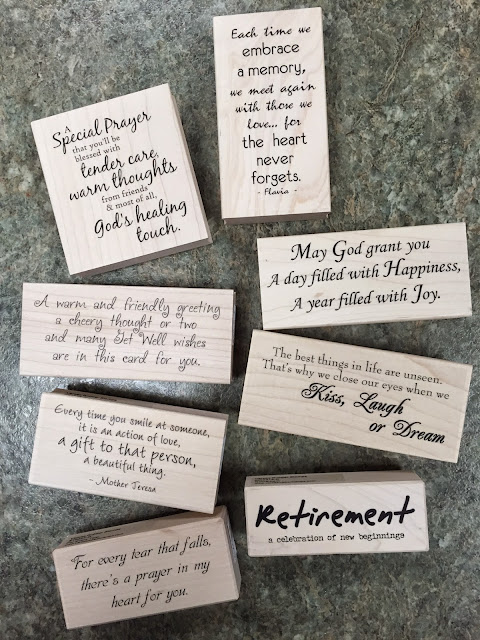 A
Special Prayer
that you'll be
blessed with
tender care,
warm thoughts
from friends
& most of all,
God's healing
touch.
Each time we
embrace
a memory,
we meet again
with those we
love... for
the heart
never
forgets.
- Flavia -
May God grant you
A day filled with Happiness,
A year filled with Joy.
A warm and friendly greeting
a cheery thought or two
and many Get Well wishes
are in this card for you.
The best things in life are unseen.
That's why we close our eyes when we
Kiss, Laugh
or Dream
Every time you smile at someone,
it is an action of love,
a gift to that person,
a beautiful thing.
~ Mother Teresa
Retirement
a celebration of new beginnings
For every tear that falls,
there's a prayer in my
heart for you.